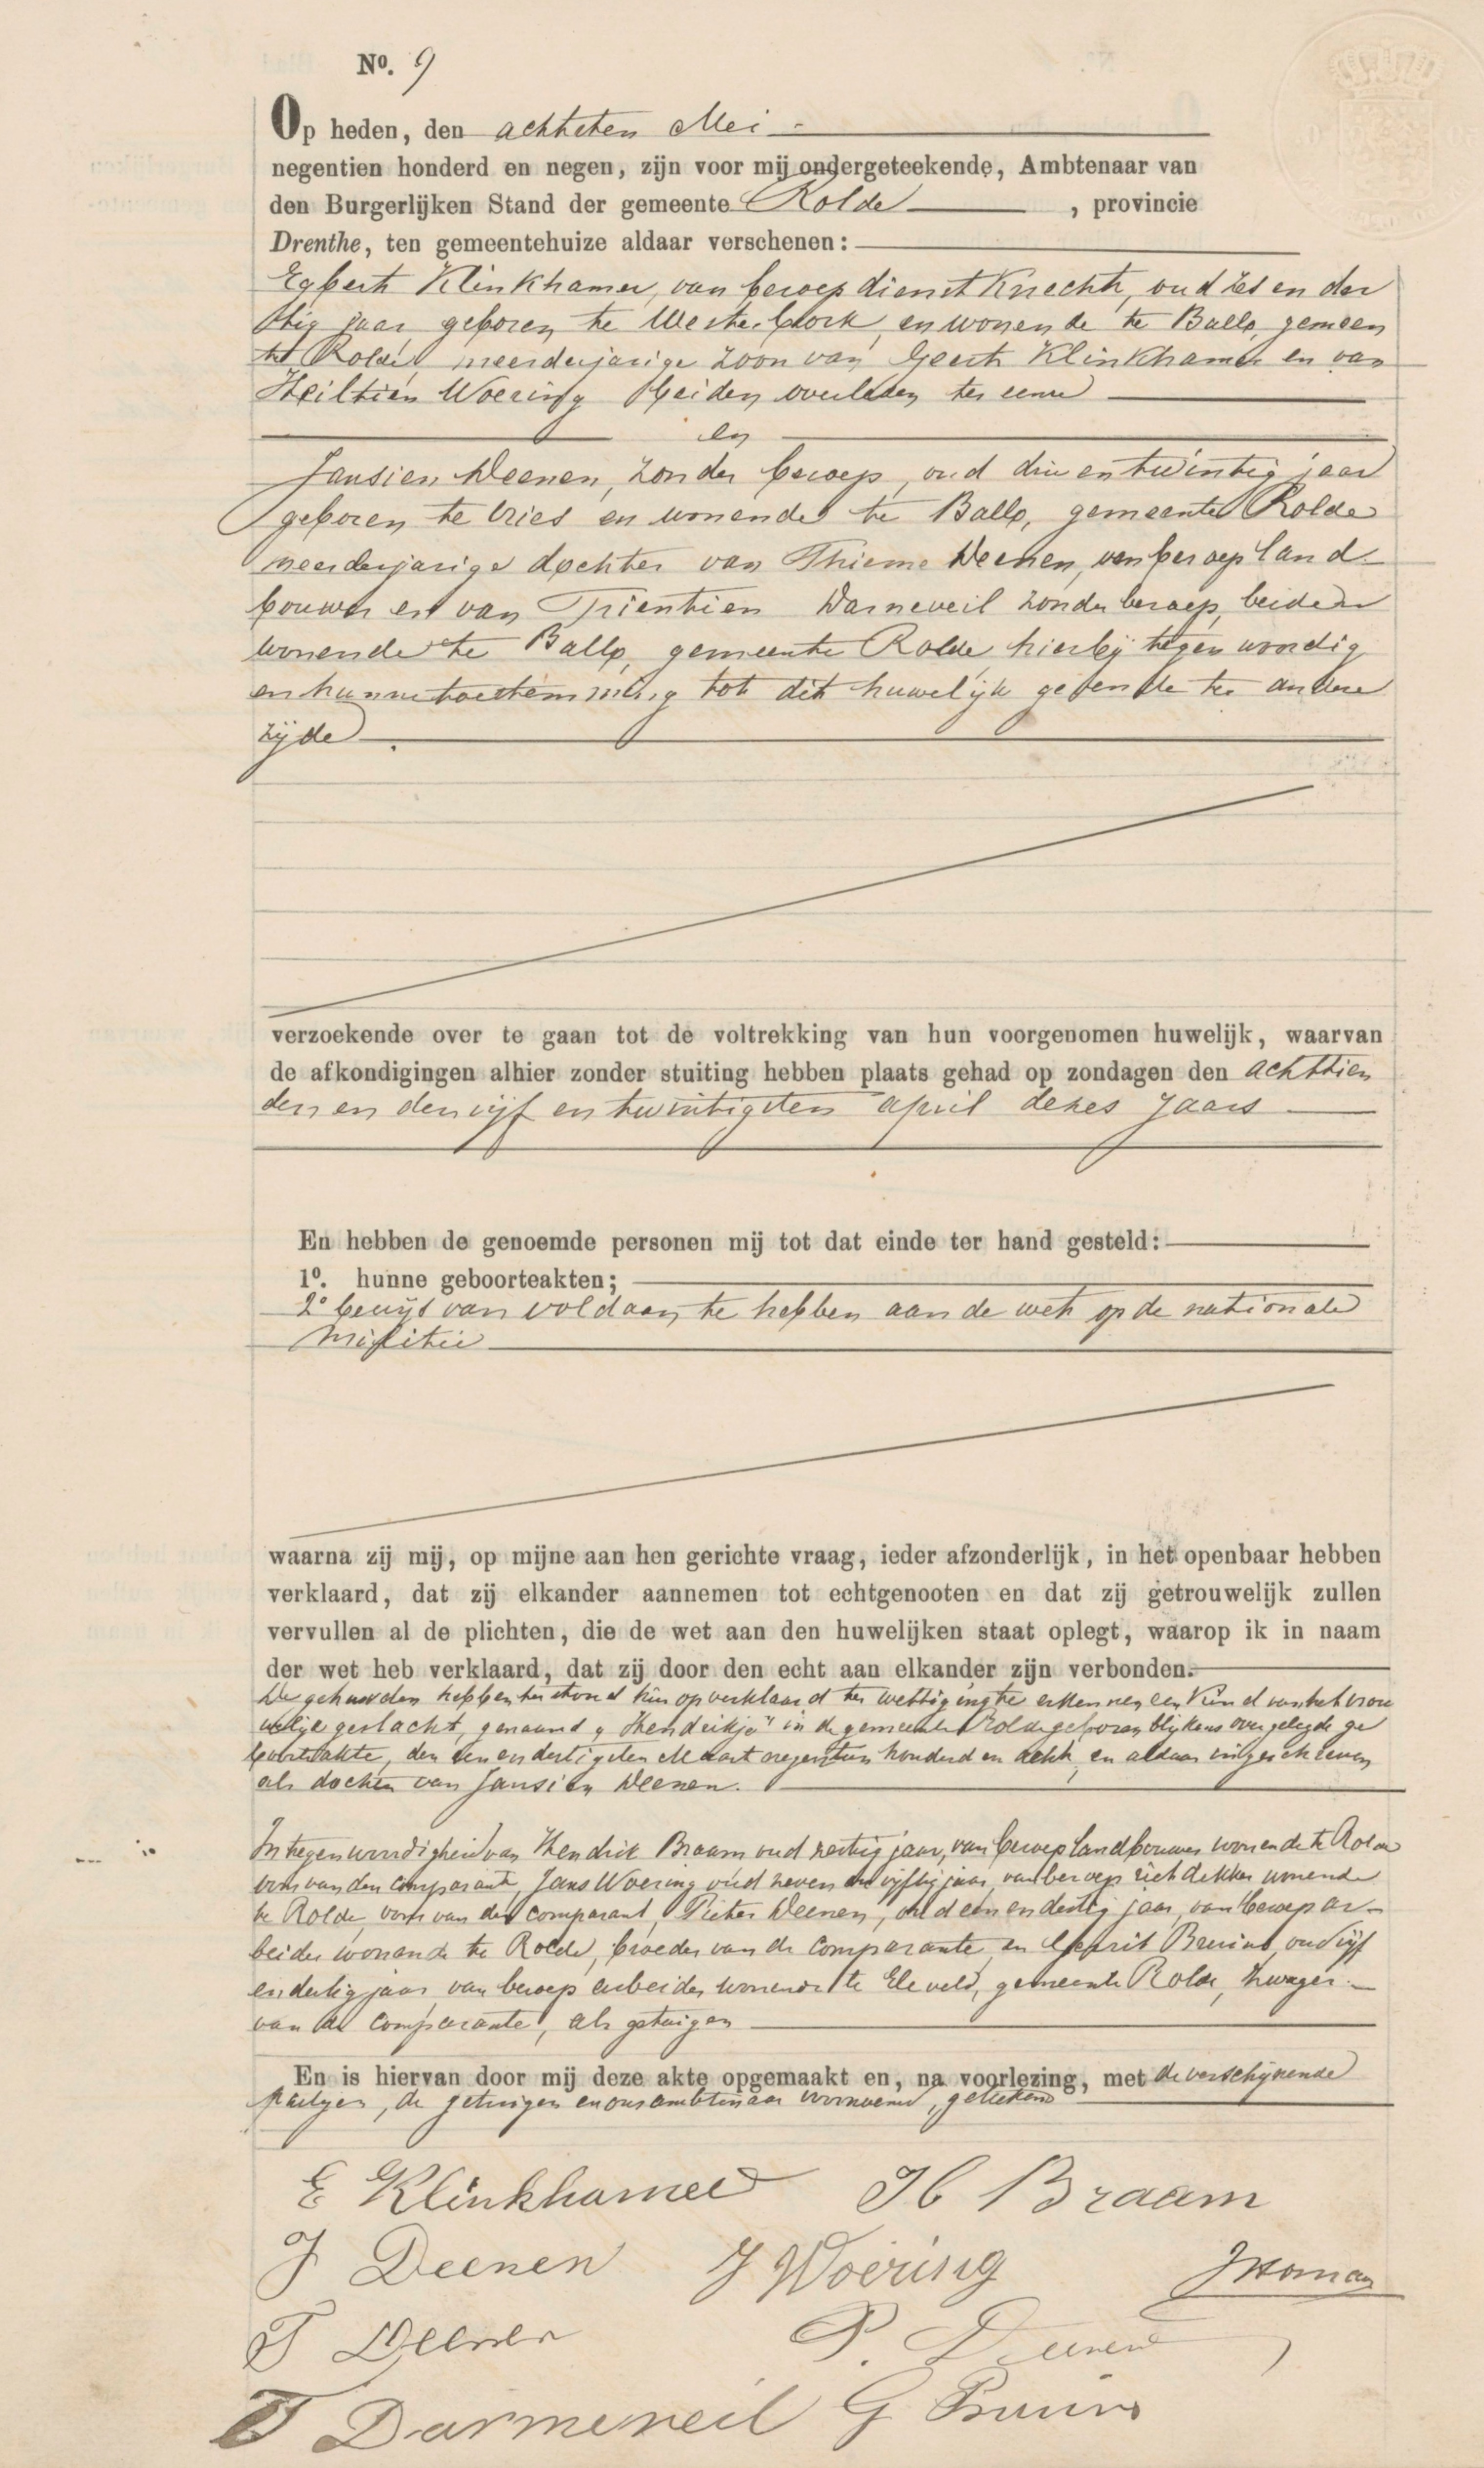 No. 9
Op heden, den achtsten Mei
negentien honderd en negen, zijn voor mij ondergeteekende, Ambtenaar van
den Burgerlijken Stand der gemeente Rolde, provincie
Drenthe, ten gemeentehuize aldaar verschenen:
Egbert Klinkhamer, van beroep dienstknecht, oud zes en der
tig jaar, geboren te Westerbork, en wonende te Ballo, gemeen
te Rolde meerderjarige zoon van Geert Klinkhamer en van
Heiltien Woering beiden overleden ter eenre
en
Jansien Deenen, zonder beroep, oud drie en twintig jaar
geboren te Vries en wonende te Ballo, gemeente Rolde
meerderjarige dochter van Thieme Deenen, van beroep land
bouwer en van Trientien Darneveil zonder beroep, beiden
wonende te Ballo, gemeente Rolde hierbij tegenwoordig
en hunne toestemming tot dit huwelijk gevende ter andere
zijde.
verzoekende over te gaan tot de voltrekking van hun voorgenomen huwelijk, waarvan
de afkondigingen alhier zonder stuiting hebben plaats gehad op zondagen den achttien
den en den vijf en twintigsten april dezes jaars
En hebben de genoemde personen mij tot dat einde ter hand gesteld:
1o. hunne geboorteakten;
2o bewijs van voldaan te hebben aan de wet op de nationale
militie
waarna zij mij, op mijne aan hen gerichte vraag, ieder afzonderlijk, in het openbaar hebben
verklaard, dat zij elkander aannemen tot echtgenooten en dat zij getrouwelijk zullen
vervullen al de plichten, die de wet aan den huwelijken staat oplegt, waarop ik in naam
der wet heb verklaard, dat zij door den echt aan elkander zijn verbonden.
De gehuwden hebben terstond hierop verklaard ter wettiging te erkennen een kind van het vrou
welijk geslacht, genaamd "Hendrikje" in de gemeente Rolde geboren blijkens overgelegde ge
boorteakte, den een en dertigsten Maart negentien honderd en acht, en aldaar ingeschreven
als dochter van Jansien Deenen.
In tegenwoordigheid van Hendrik Braam oud zestig jaar, van beroep landbouwer wonende te Rolde
oom van den comparant, Jans Woering oud zeven en vijftig jaar, van beroep rietdekker wonende
te Rolde, oom van den comparant, Pieter Deenen, oud een en dertig jaar, van beroep ar-
beider wonende te Rolde, broeder van de comparante en Gerrit Bruins oud vijf
en dertig jaar van beroep arbeider wonende te Eleveld, gemeente Rolde, zwager
van de comparante, als getuigen
En is hiervan door mij deze akte opgemaakt en, na voorlezing, met de verschijnende
partijen, de getuigen en ons ambtenaar voornoemd, geteekend
E Klinkhamer H Braam
J Deenen J Woering JHoman
T Deenen P. Deenen
T Darmeneil G Bruins